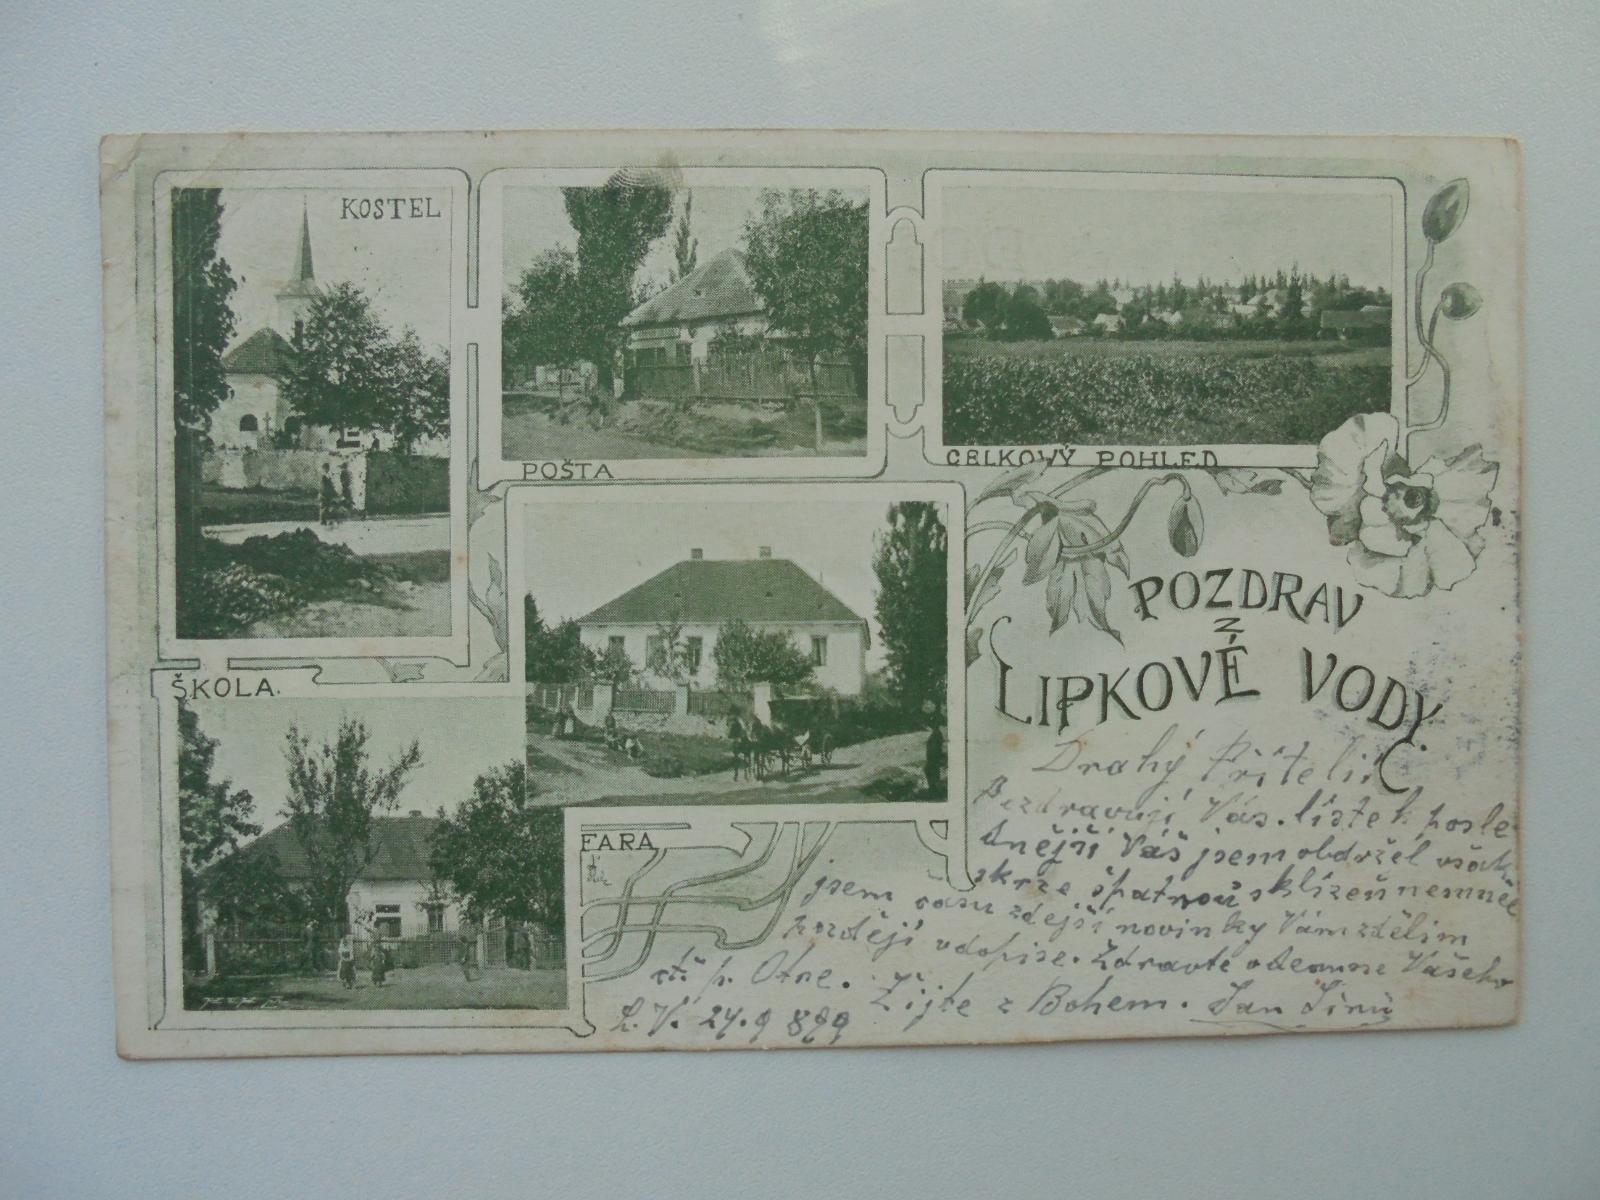 KOSTEL
POŠTA
CELKOVÝ POHLED
POZDRAV
Z
LIPKOVÉ VODY.
ŠKOLA.
FARA
Drahý Příteli
Pozdravují Vás. lístek posle
dnější Váš jsem obdržel však
skrze špatnou sklízeň nemněl
jsem času zdejší novinky Vám zdělim
pozdějí v dopise. Zdravte odemne Vašeho
ct. p. Otce. Žijte z Bohem. Jan
L. V. 24. 9 899